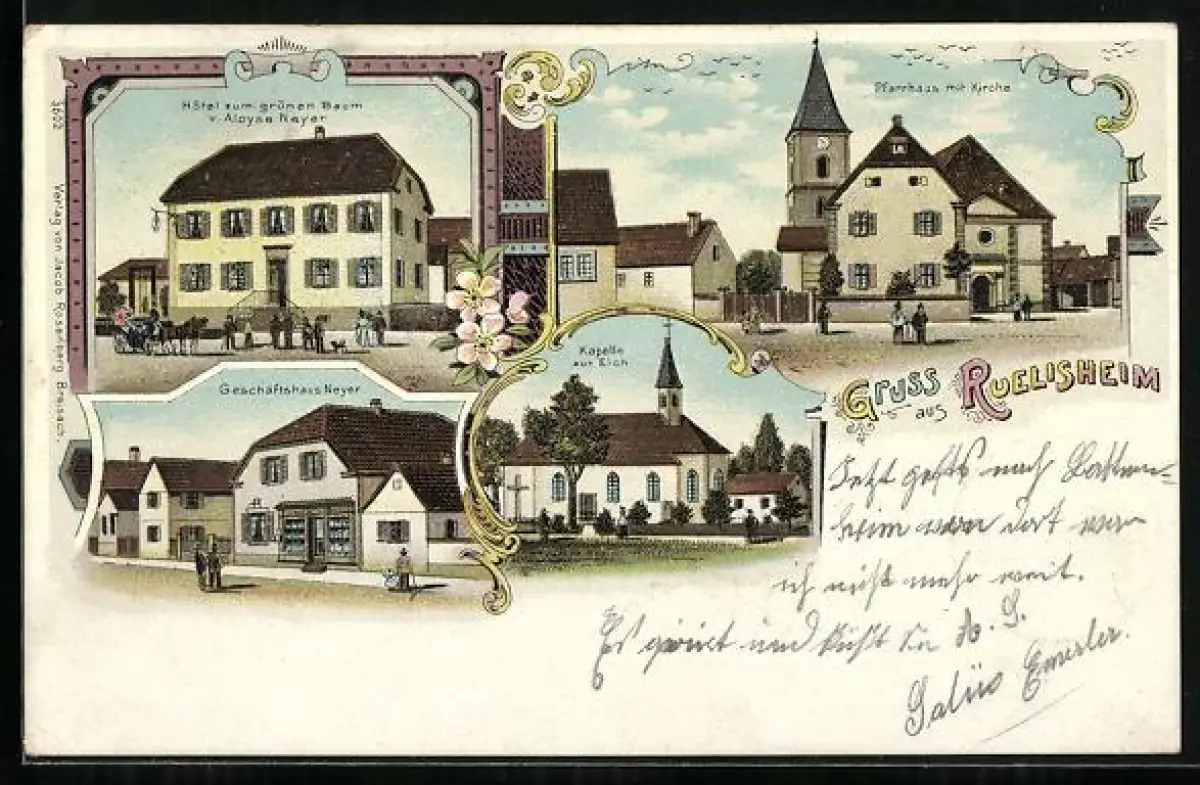 Hôtel zum grünen Baum
v. Aloyse Neyer
Pfarrhaus mit Kirche
Geschäftshaus Neyer
Kapelle
zur Eich
Gruss
aus
Ruelisheim
3602 Verlag von Jacob Rosenberg Breisach.
Jetzt gehts nach Batten-
heim von dort
ich nicht mehr weit.
Es grüsst und küsst